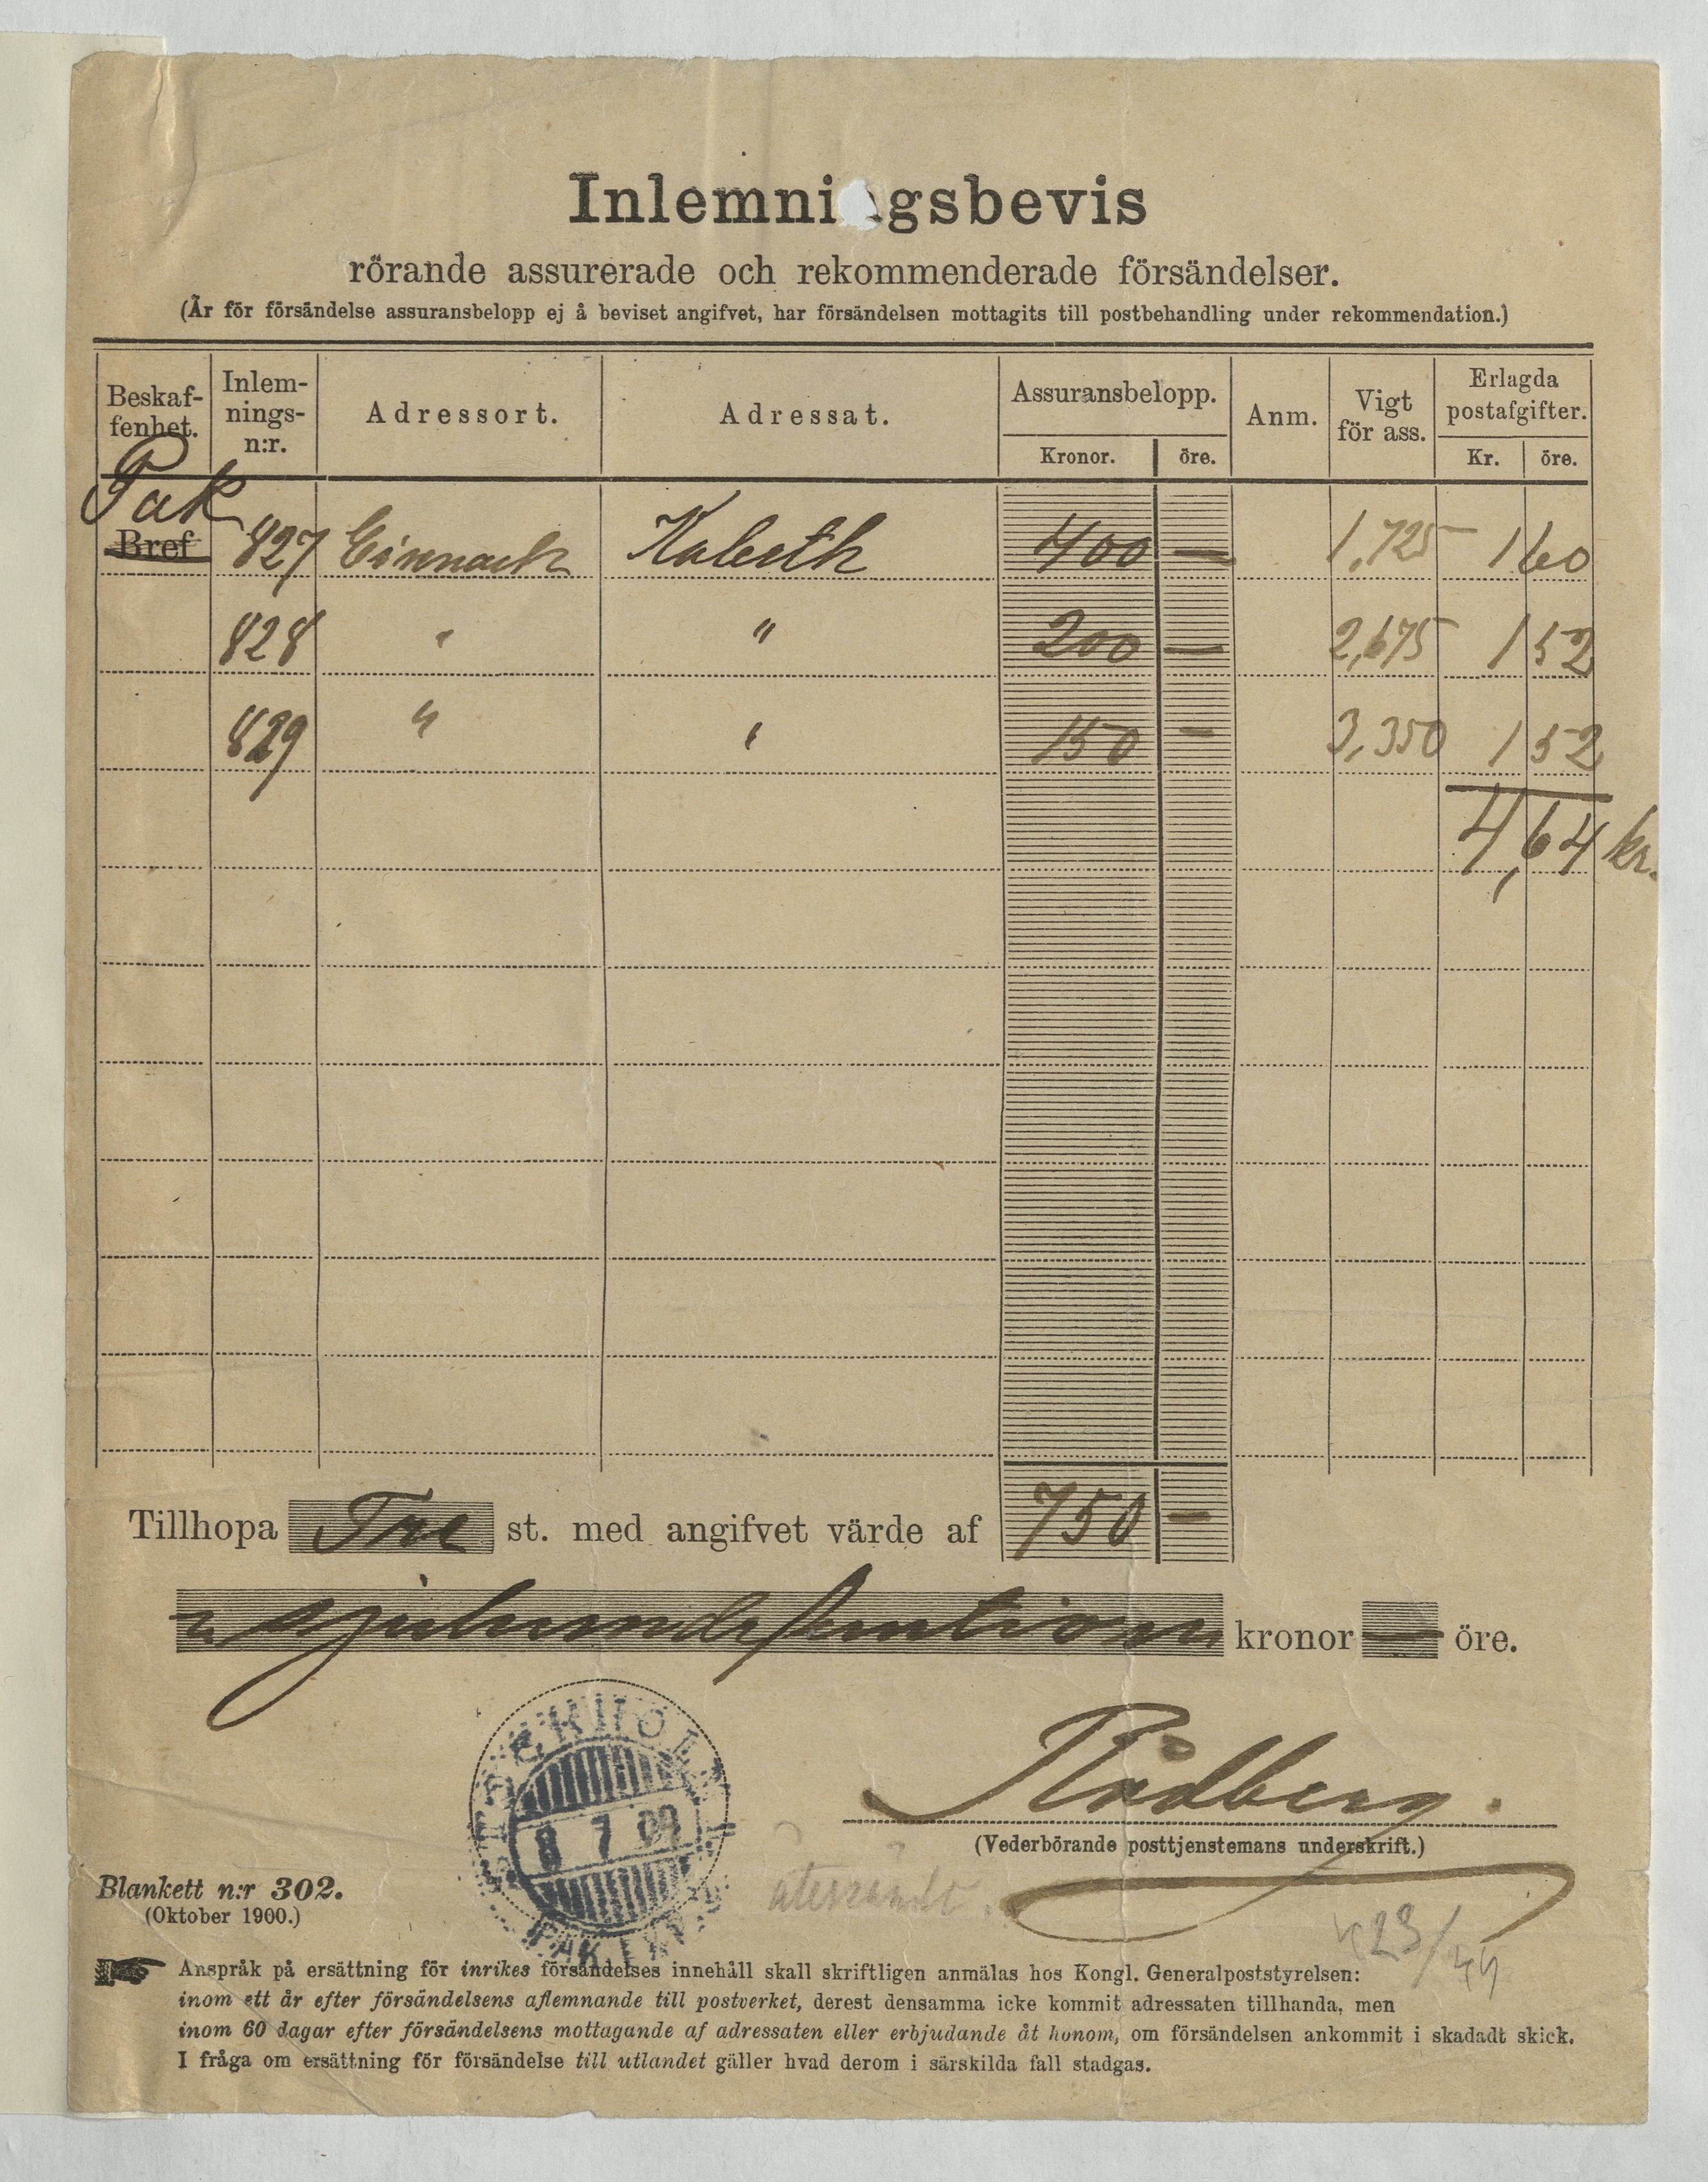 Inlemningsbevis
rörande assurerade och rekommenderade försändelser.
(Är för försändelse assuransbelopp ej å beviset angifvet, har försändelsen mottagits till postbehandling under rekommendation.)
Beskaf-fenhet. Inlem-nings-n:r. Adressort. Adressat. Assuransbelopp. Kronor. öre. Anm. Vigt för ass. Erlagda postafgifter. Kr. öre.
Pak
Bref 827 Eisenach Kaleth 400 — 1,725 1 60
828 " " 200 — 2,675 1 52
829 " " 150 - 3,350 1 52
4,64 kr.
Tillhopa Tre st. med angifvet värde af 750 —
sjuhundrafemtio kronor — öre.
8 7 09
Rådberg.
(Vederbörande posttjenstemans underskrift.)
Blankett n:r 302.
(Oktober 1900.)
Anspråk på ersättning för inrikes försändelses innehåll skall skriftligen anmälas hos Kongl. Generalpoststyrelsen:
inom ett år efter försändelsens aflemnande till postverket, derest densamma icke kommit adressaten tillhanda, men
inom 60 dagar efter försändelsens mottagande af adressaten eller erbjudande åt honom, om försändelsen ankommit i skadadt skick.
I fråga om ersättning för försändelse till utlandet gäller hvad derom i särskilda fall stadgas.